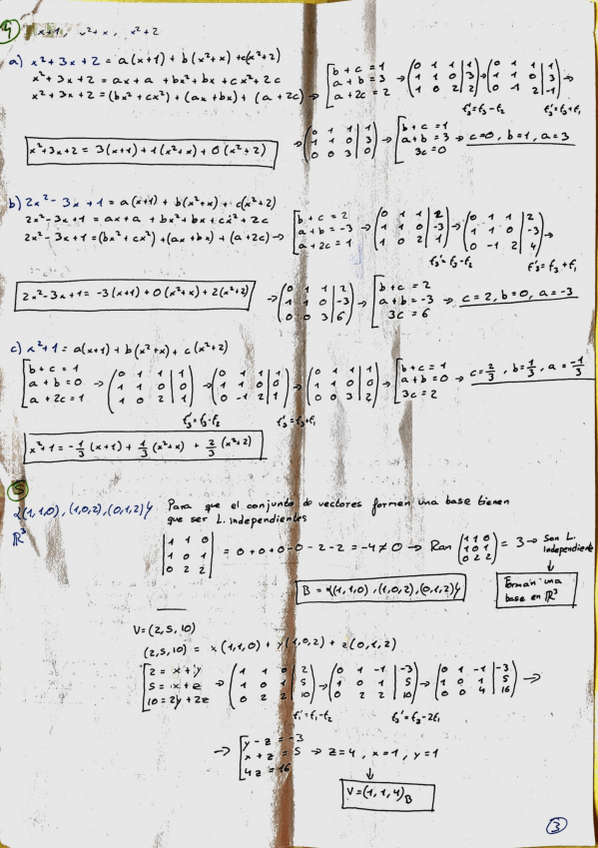 4) x+1, x²+x, x²+2
a) x²+3x+2 = a(x+1) + b(x²+x) + c(x²+2)
x²+3x+2 = ax+a + bx²+bx + cx²+2c
x²+3x+2 = (bx²+cx²) + (ax+bx) + (a+2c) → [b+c=1 a+b=3 a+2c=2 → (0 1 1 | 1; 1 1 0 | 3; 1 0 2 | 2) → (0 1 1 | 1; 1 1 0 | 3; 0 -1 2 | -1) →
f₃'=f₃-f₂ f₃'=f₃+f₁
x²+3x+2 = 3(x+1) + 1(x²+x) + 0(x²+2) → (0 1 1 | 1; 1 1 0 | 3; 0 0 3 | 0) → [b+c=1 a+b=3 3c=0 → c=0, b=1, a=3
b) 2x²-3x+1 = a(x+1) + b(x²+x) + c(x²+2)
2x²-3x+1 = ax+a + bx²+bx + cx²+2c
2x²-3x+1 = (bx²+cx²) + (ax+bx) + (a+2c) → [b+c=2 a+b=-3 a+2c=1 → (0 1 1 | 2; 1 1 0 | -3; 1 0 2 | 1) → (0 1 1 | 2; 1 1 0 | -3; 0 -1 2 | 4) →
f₃'=f₃-f₂ f₃'=f₃+f₁
2x²-3x+1 = -3(x+1) + 0(x²+x) + 2(x²+2) → (0 1 1 | 2; 1 1 0 | -3; 0 0 3 | 6) → [b+c=2 a+b=-3 3c=6 → c=2, b=0, a=-3
c) x²+1 = a(x+1) + b(x²+x) + c(x²+2)
[b+c=1 a+b=0 a+2c=1 → (0 1 1 | 1; 1 1 0 | 0; 1 0 2 | 1) → (0 1 1 | 1; 1 1 0 | 0; 0 -1 2 | 1) → (0 1 1 | 1; 1 1 0 | 0; 0 0 3 | 2) → [b+c=1 a+b=0 3c=2 → c=2/3, b=1/3, a=-1/3
f₃'=f₃-f₂ f₃'=f₃+f₁
x²+1 = -1/3(x+1) + 1/3(x²+x) + 2/3(x²+2)
5
{(1,1,0), (1,0,2), (0,1,2)} Para que el conjunto de vectores formen una base tienen
que ser L. independientes
ℝ³
|1 1 0; 1 0 1; 0 2 2| = 0+0+0-0-2-2 = -4 ≠ 0 → Ran (1 1 0; 1 0 1; 0 2 2) = 3 → Son L. independiente
B = {(1,1,0), (1,0,2), (0,1,2)} Forman una base en ℝ³
V=(2,5,10)
(2,5,10) = x(1,1,0) + y(1,0,2) + z(0,1,2)
[2=x+y 5=x+z 10=2y+2z → (1 1 0 | 2; 1 0 1 | 5; 0 2 2 | 10) → (0 1 -1 | -3; 1 0 1 | 5; 0 2 2 | 10) → (0 1 -1 | -3; 1 0 1 | 5; 0 0 4 | 16) →
f₁'=f₁-f₂ f₃'=f₃-2f₁
→ [y-z=-3 x+z=5 4z=16 → z=4, x=1, y=1
V=(1,1,4)_B
3